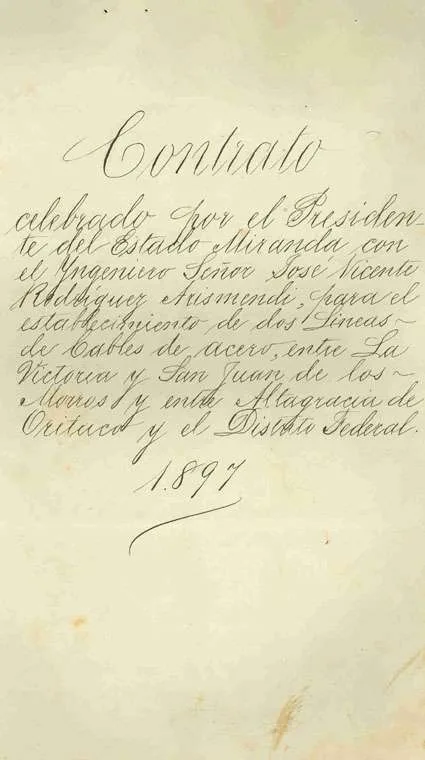 Contrato
celebrado por el Presiden-
te del Estado Miranda con
el Ingeniero Señor José Vicente
Rodríguez Arismendi, para el
establecimiento de dos Líneas-
de Cables de acero, entre La
Victoria y San Juan de los-
Morros y entre Altagracia de
Orituco y el Distrito Federal.
1.897